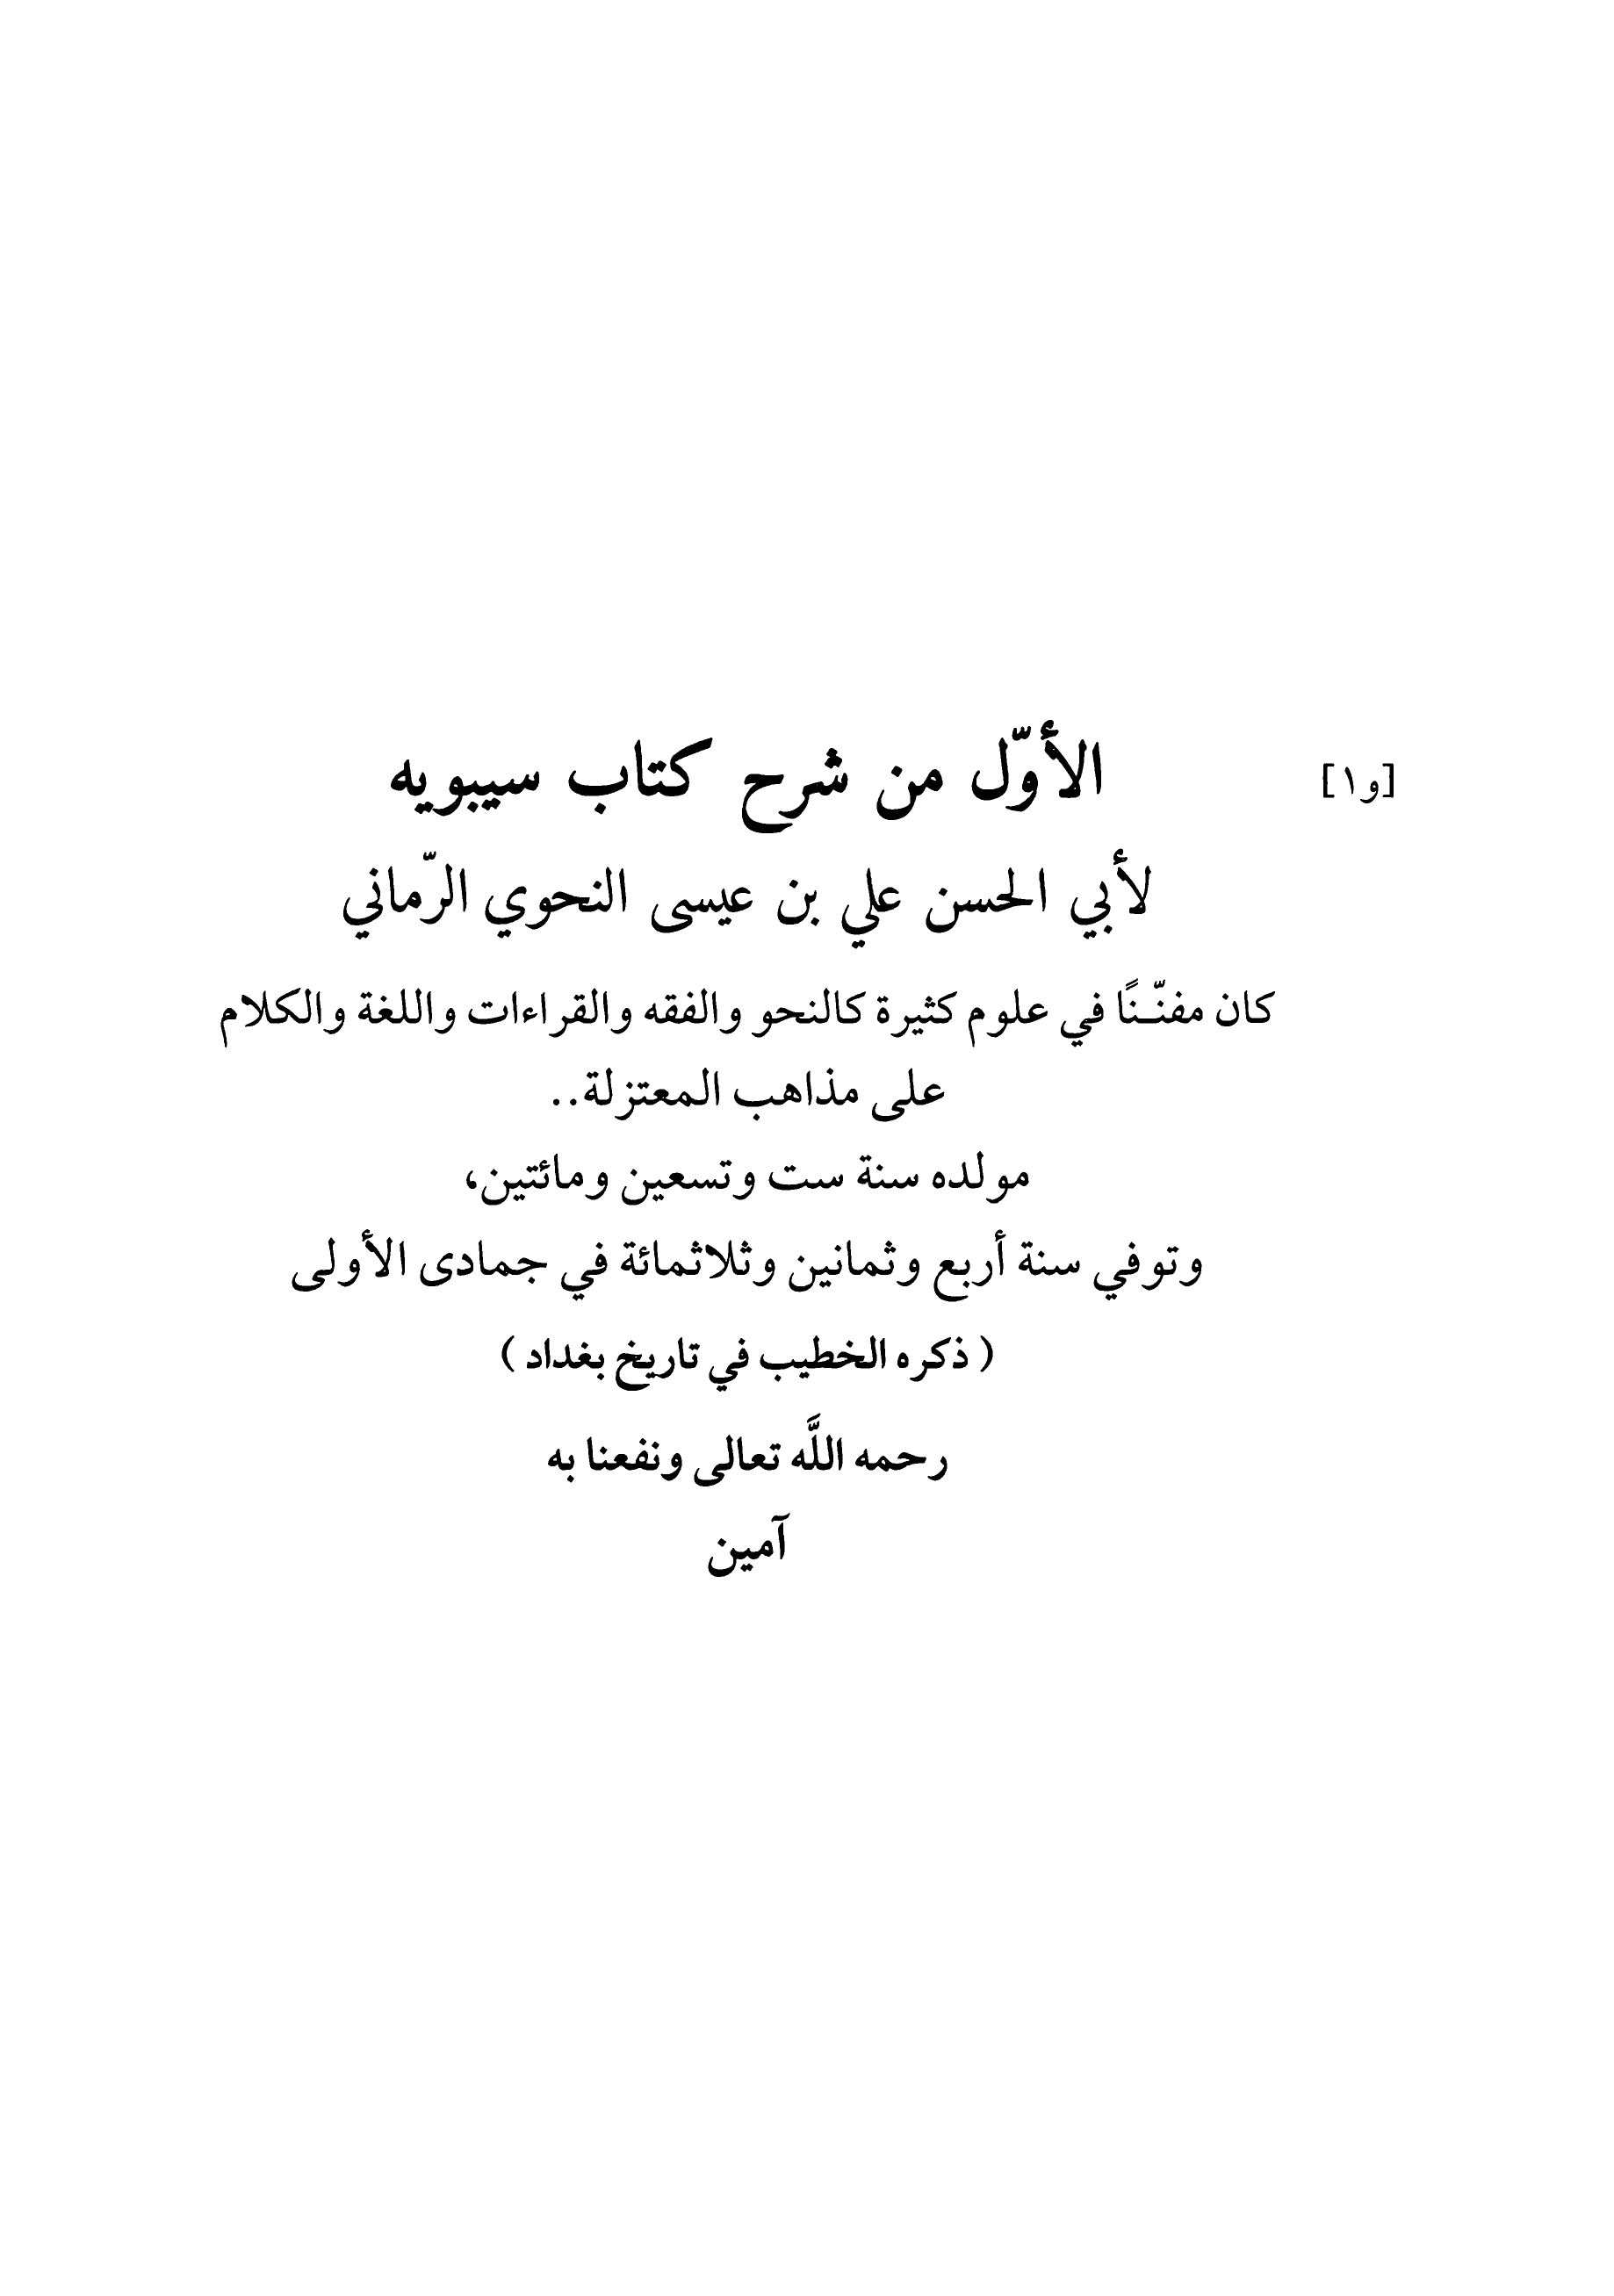 [و١] الأوّل من شرح كتاب سيبويه
لأبي الحسن علي بن عيسى النحوي الرّماني
كان مفنّـنًا في علوم كثيرة كالنحو والفقه والقراءات واللغة والكلام
على مذاهب المعتزلة..
مولده سنة ست وتسعين ومائتين،
وتوفي سنة أربع وثمانين وثلاثمائة في جمادى الأولى
( ذكره الخطيب في تاريخ بغداد )
رحمه اللَّه تعالى ونفعنا به
آمين